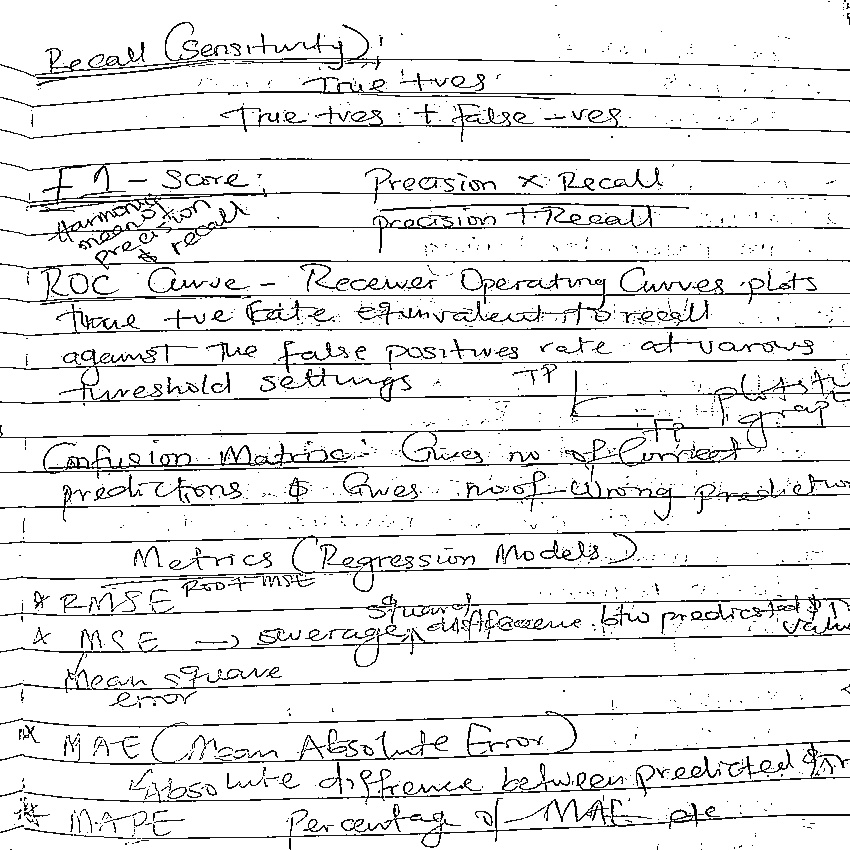 Recall (Sensitivity):
True +ves
True +ves + False -ves
F1 - Score: Precision x Recall
precision + Recall
Harmony
mean of
precision
& recall
ROC Curve - Receiver Operating Curves plots
true +ve rate equivalent to recall
against the false positives rate at varous
threshold settings. TP
plots
grap
Confusion Matrix: Gives no of Correct
predictions & Gives no of Wrong prediction
Metrics (Regression Models)
* RMSE Root MSE
* MSE → average squared difference btw predicted
valu
Mean square
error
* MAE (Mean Absolute Error)
Absolute diffrence between predicted &
* MAPE Percentage of MAE